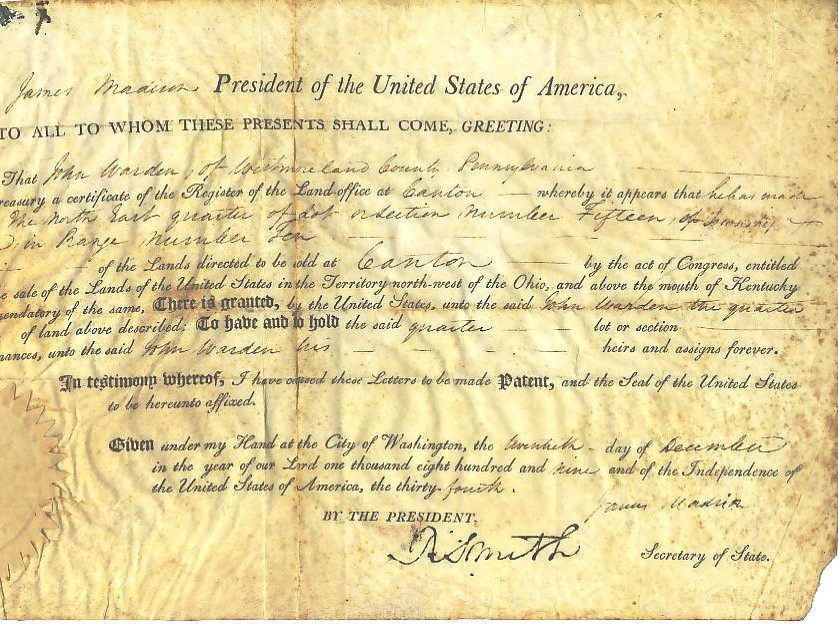 James Madison President of the United States of America,
TO ALL TO WHOM THESE PRESENTS SHALL COME, GREETING:
That John Warden, of Westmoreland County Pennsylvania
reasury a certificate of the Register of the Land-office at Canton — whereby it appears that he has made
The North East quarter of Lot or section Number Fifteen, of Township
in Range Number Ten
— of the Lands directed to be sold at Canton — by the act of Congress, entitled
e sale of the Lands of the United States in the Territory north-west of the Ohio, and above the mouth of Kentucky
endatory of the same, There is granted, by the United States, unto the said John Warden the quarter
of land above described: To have and to hold the said quarter — — lot or section
nances, unto the said John Warden his — — — — heirs and assigns forever.
In testimony whereof, I have caused these Letters to be made Patent, and the Seal of the United States
to be hereunto affixed.
Given under my Hand at the City of Washington, the twentieth - day of December
in the year of our Lord one thousand eight hundred and nine and of the Independence of
the United States of America, the thirty-fourth.
James Madison
BY THE PRESIDENT,
R Smith Secretary of State.